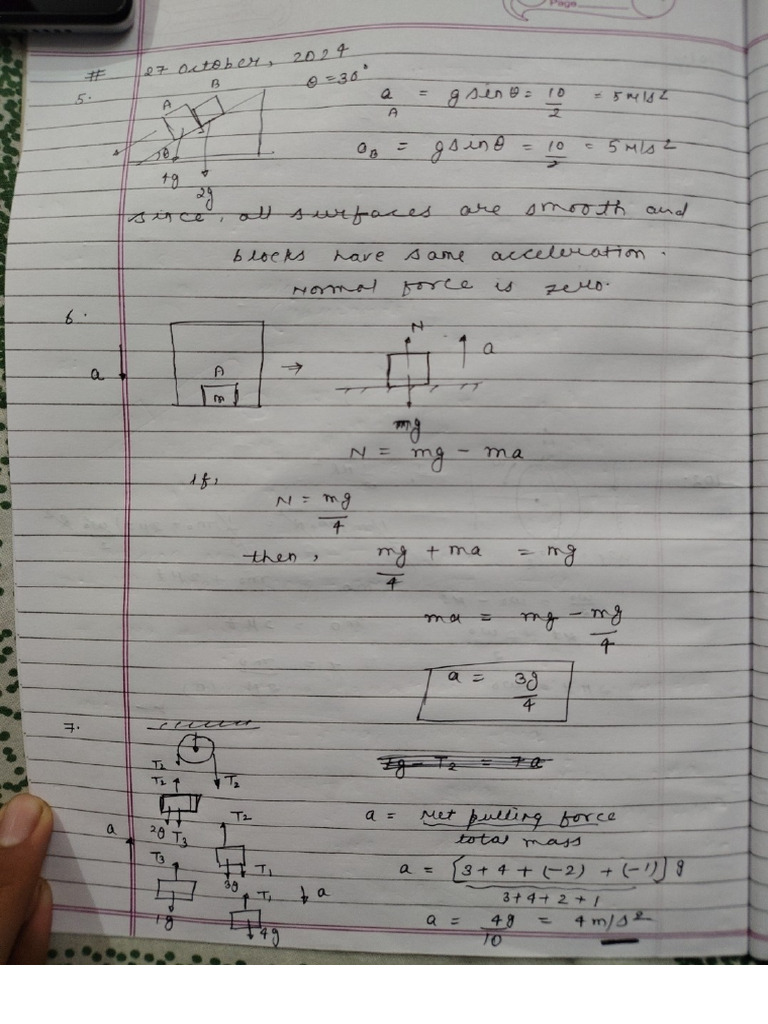 Page
# 27 October, 2024
5.
θ = 30°
A
B
θ
4g
2g
a_A = g sin θ = 10/2 = 5 m/s²
a_B = g sin θ = 10/2 = 5 m/s²
since, all surfaces are smooth and
blocks have same acceleration.
Normal force is zero.
6.
a
A
m
→
N
a
mg
N = mg - ma
If,
N = mg/4
then, mg/4 + ma = mg
ma = mg - mg/4
a = 3g/4
7.
T₂
T₂
T₂
2g T₃
a
T₃
1g
T₂
3g T₁
T₁
4g
a
7g - T₂ = 7a
a = Net pulling force / total mass
a = [3 + 4 + (-2) + (-1)] g / 3 + 4 + 2 + 1
a = 4g/10 = 4 m/s²